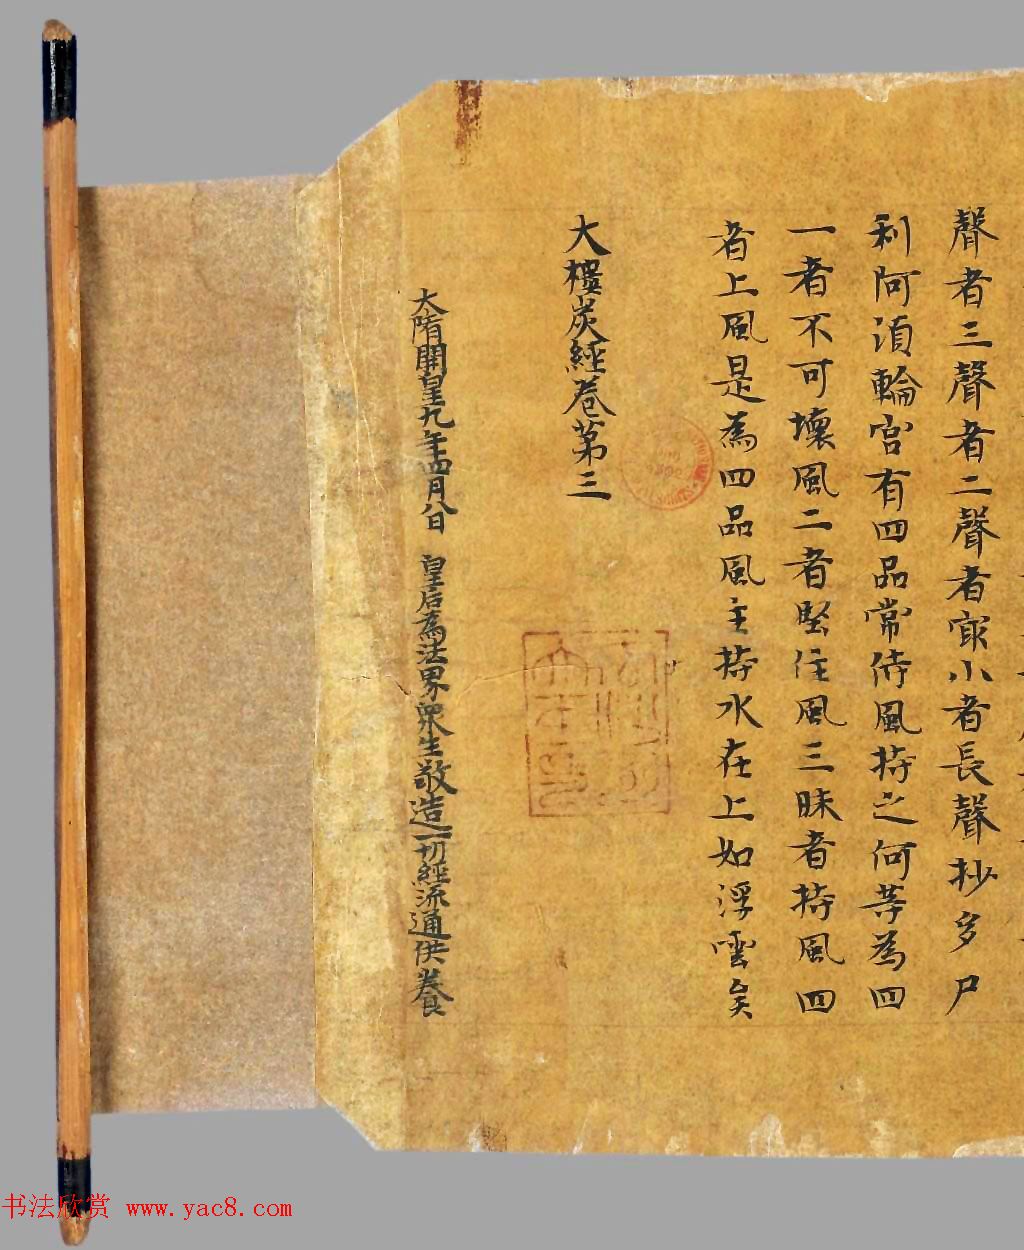 聲者三聲者二聲者㝡小者長聲抄多尸
利阿湏輪宫有四品常侍風持之何等為四
一者不可壞風二者堅住風三昧者持風四
者上風是為四品風主持水在上如浮雲矣
大樓炭經卷第三
大隋開皇九年四月八日 皇后為法界衆生敬造一切經流通供養
书法欣赏 www.yac8.com